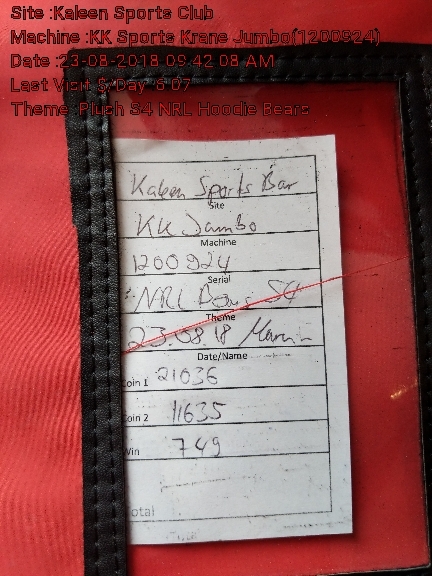 Site :Kaleen Sports Club
Machine :KK Sports Krane Jumbo(1200924)
Date :23-08-2018 09:42:08 AM
Last Visit $/Day :6.07
Theme :Plush S4 NRL Hoodie Bears
Kaleen Sports Bar
Site
KK Jambo
Machine
1200924
Serial
NRL S4
Theme
23.08.18
Date/Name
oin 1 21036
oin 2 11635
Win 749
otal